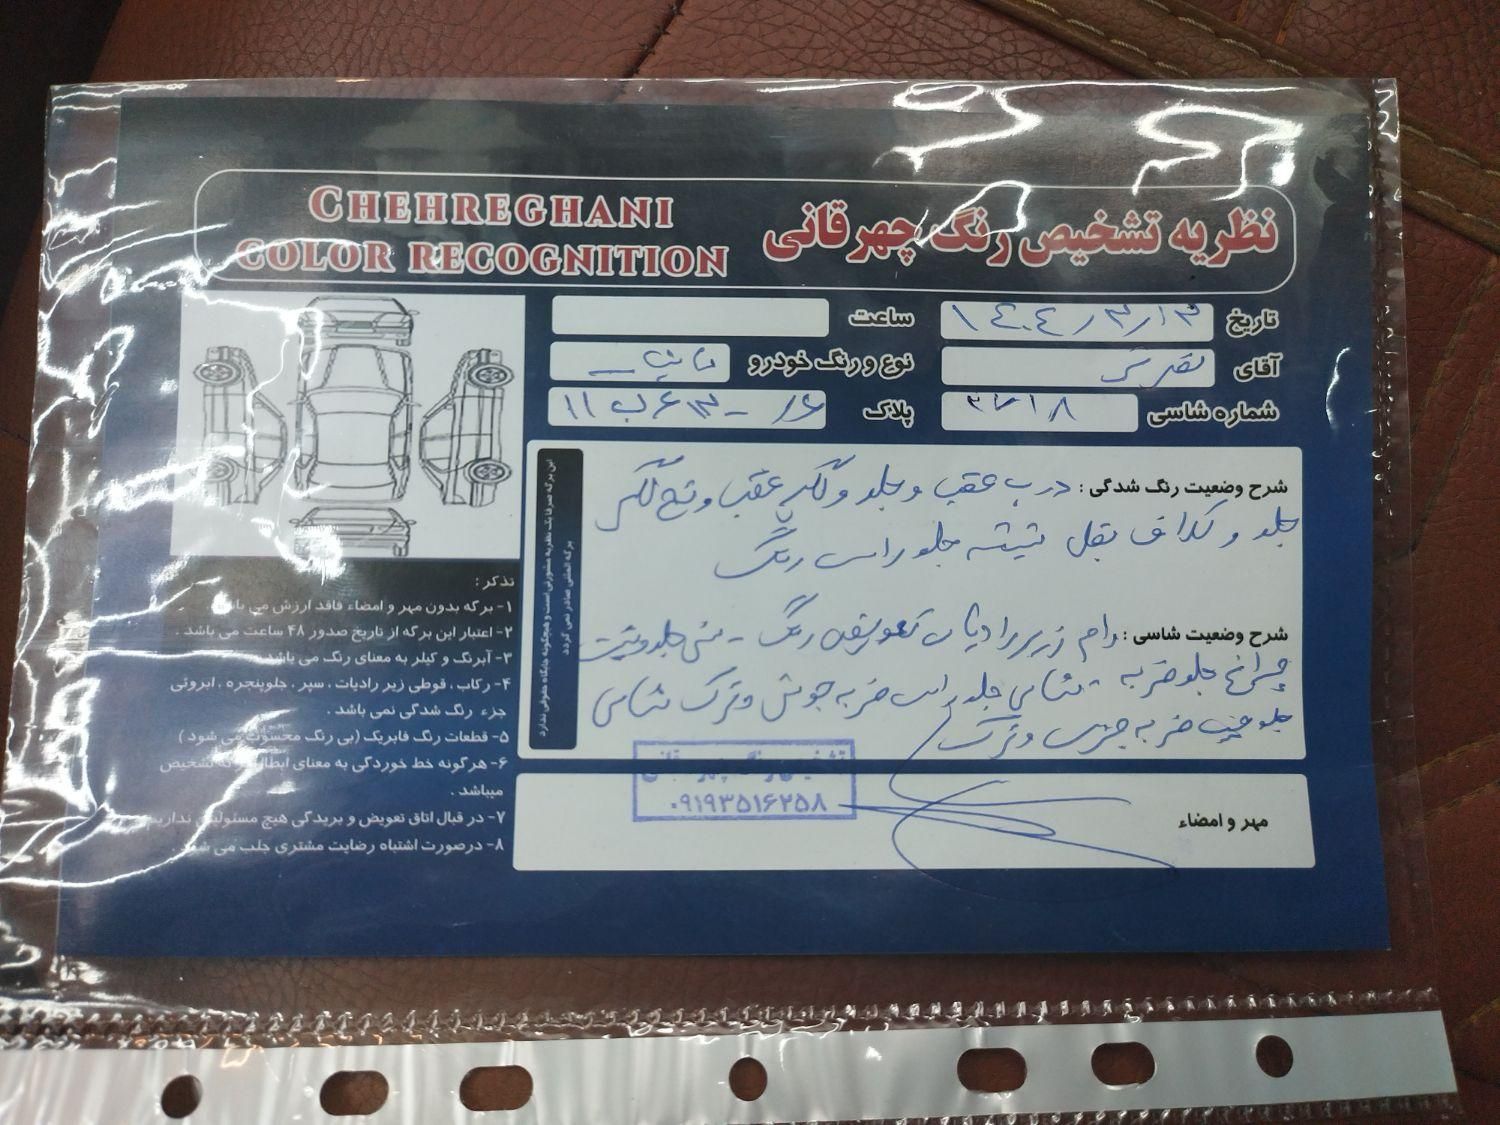 CHEHREGHANI
COLOR RECOGNITION
نظریه تشخیص رنگ چهرقانی
تاریخ ۱۴۰۴/۳/۱۳
ساعت
آقای
نوع و رنگ خودرو
شماره شاسی ۲۷۱۸
پلاک
شرح وضعیت رنگ شدگی : درب عقب و جلو و گلگیر عقب و گلگیر
جلو و بغل شیشه جلو راست رنگ
شرح وضعیت شاسی : رام زیر رادیات تعویض رنگ - سینی جلو و پشت
چراغ جلو ضربه - شاسی جلو راست ضربه جوش و ترک شاسی
جلو چپ ضربه و ترک
این برگه صرفا یک نظریه مشورتی است و هیچگونه جایگاه حقوقی ندارد
برگه المثنی صادر نمی گردد
تذکر :
۱- برگه بدون مهر و امضاء فاقد ارزش می باشد
۲- اعتبار این برگه از تاریخ صدور ۴۸ ساعت می باشد .
۳- آبرنگ و کیلر به معنای رنگ می باشد
۴- رکاب ، قوطی زیر رادیات ، سپر ، جلوپنجره ، ابروئی
جزء رنگ شدگی نمی باشد .
۵- قطعات رنگ فابریک (بی رنگ محسوب می شود )
۶- هرگونه خط خوردگی به معنای ابطال تشخیص
میباشد .
۷- در قبال اتاق تعویض و بریدگی هیچ مسئولیتی نداریم
۸- درصورت اشتباه رضایت مشتری جلب می شود .
مهر و امضاء
تشخیص رنگ چهرقانی
۰۹۱۹۳۵۱۶۲۵۸